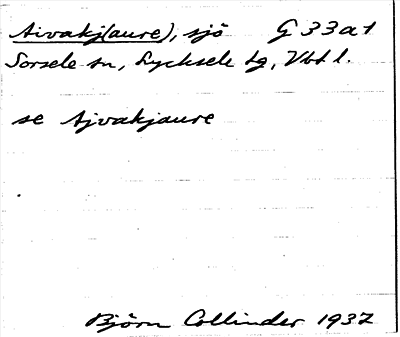 Aivakj(aure), sjö G 33 a 1
Sorsele sn, Lycksele lg, Vbt l.
se Ajvakjaure
Björn Collinder 1937